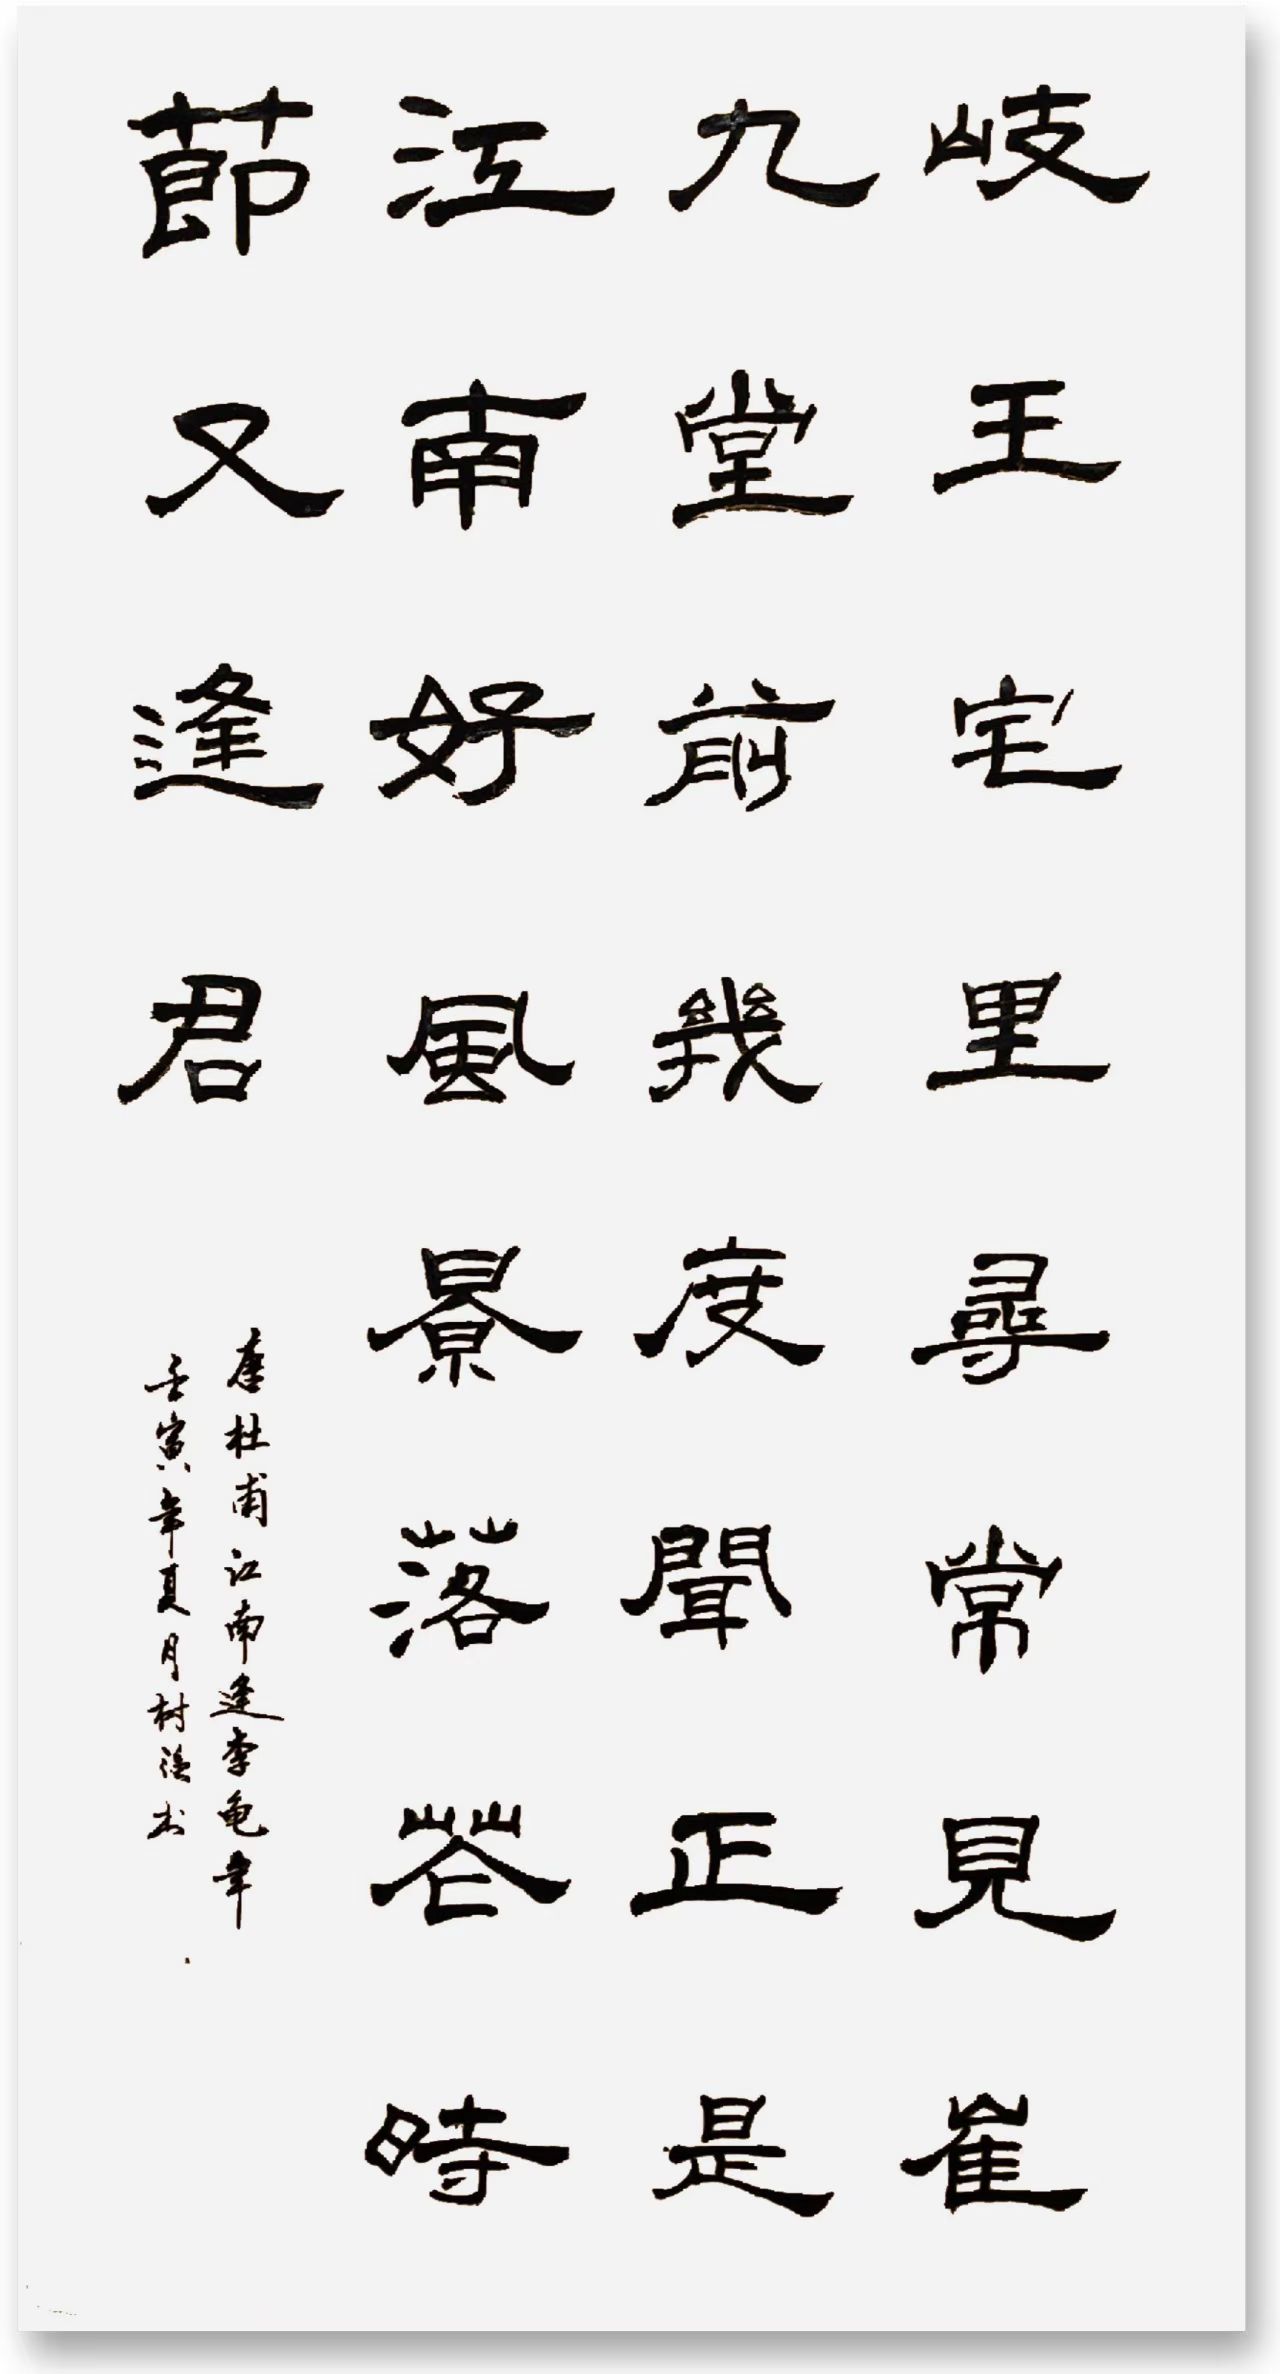 岐王宅里尋常見崔
九堂前幾度聞正是
江南好風景落花時
節又逢君
唐杜甫江南逢李龟年
壬寅年夏月树书